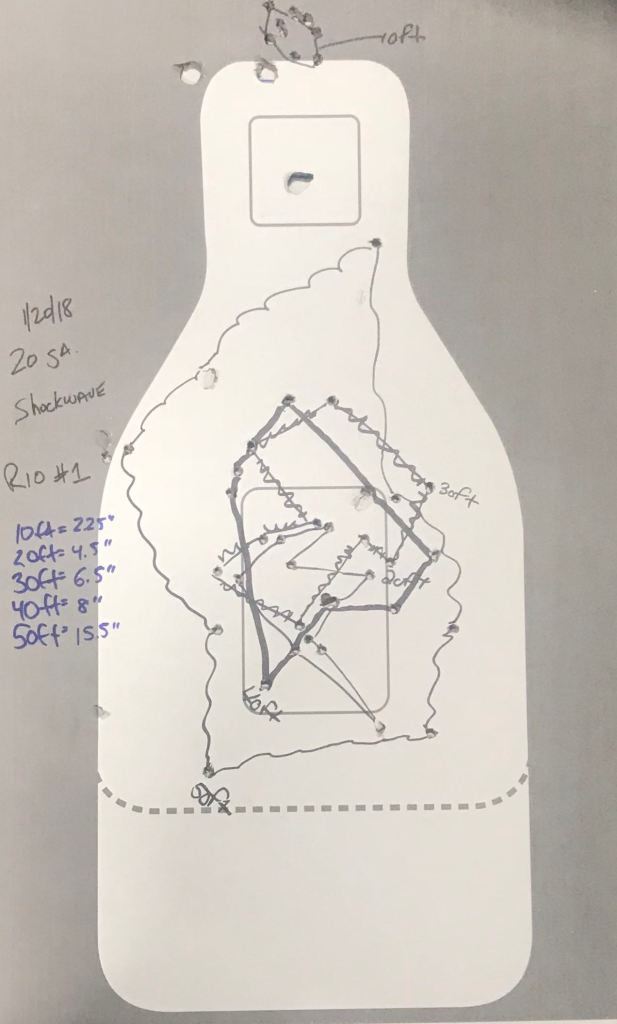 10ft
1/20/18
20 GA.
Shockwave
RIO #1
10ft = 2.25"
20ft = 4.5"
30ft = 6.5"
40ft = 8"
50ft = 15.5"
30ft
20ft
40ft